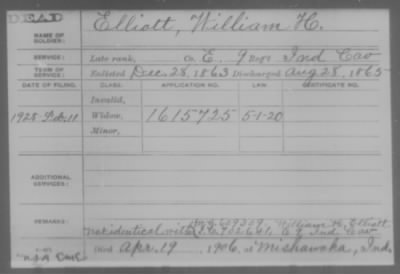 DEAD
NAME OF SOLDIER: Elliott, William H.
SERVICE: Late rank, Co. E, 9 Reg't Ind Cav
TERM OF SERVICE: Enlisted Dec. 28, 1863 Discharged Aug 28, 1865
DATE OF FILING. CLASS. APPLICATION NO. LAW. CERTIFICATE NO.
Invalid,
1928 Feb. 11 Widow, 1615725 5-1-20
Minor,
ADDITIONAL SERVICES:
REMARKS: William H. Elliott
not identical with Ind Cav
Died Apr. 19, 1906, at Mishawaka, Ind.